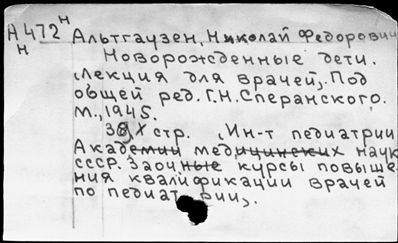 А472н Альтгаузен, Николай Федорович
н Новорожденные дети.
(Лекция для врачей). Под
общей ред. Г.Н. Сперанского.
М., 1945.
38, X стр. (Ин-т педиатрии
Академии медицинских наук
СССР. Заочные курсы повыше-
ния квалификации врачей
по педиат рии).